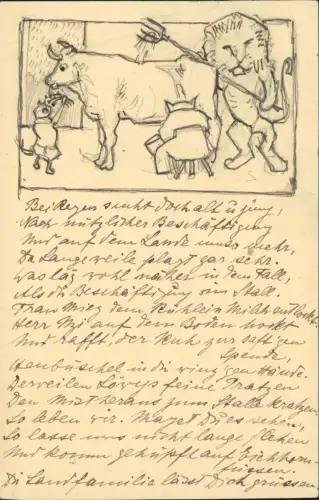 Bei Regen sucht doch alt u jung,
Nach nützlicher Beschäftigung
Und auf dem Lande umso mehr,
Da Langeweile plagt gar sehr.
Was läg wohl näher in dem Fall,
Als die Beschäftigung im Stall.
Frau Mieg dem Kühlein Milch entlockt.
Herr Mi auf dem Boden hockt
Und rafft, der Kuh zur saft'gen Spende,
Heubüschel in die winz'gen Hände.
Derweilen Löwys feine Pratzen
Den Mist heraus zum Stalle kratzen.
So leben wir. Magst Du es sehen,
So lasse uns nicht lange flehen
Und komm gehüpft auf Eichhornfüssen.
Die Landfamilie lässt Dich grüssen.